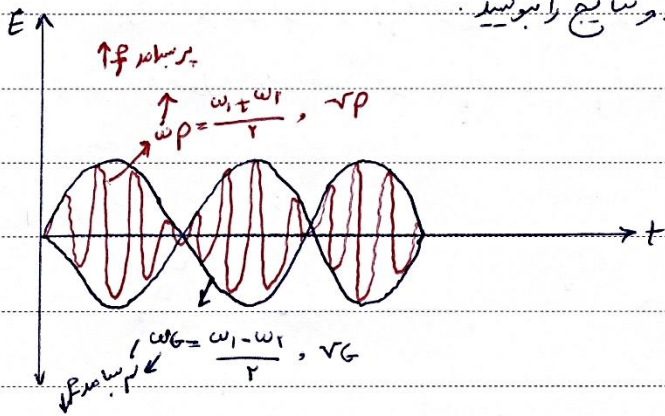 و نتایج را بنویسید.
E
پربسامد f↑
ωp = (ω₁+ω₂)/۲ , vp
t
ωG = (ω₁-ω₂)/۲ , vG
کم بسامد f↓